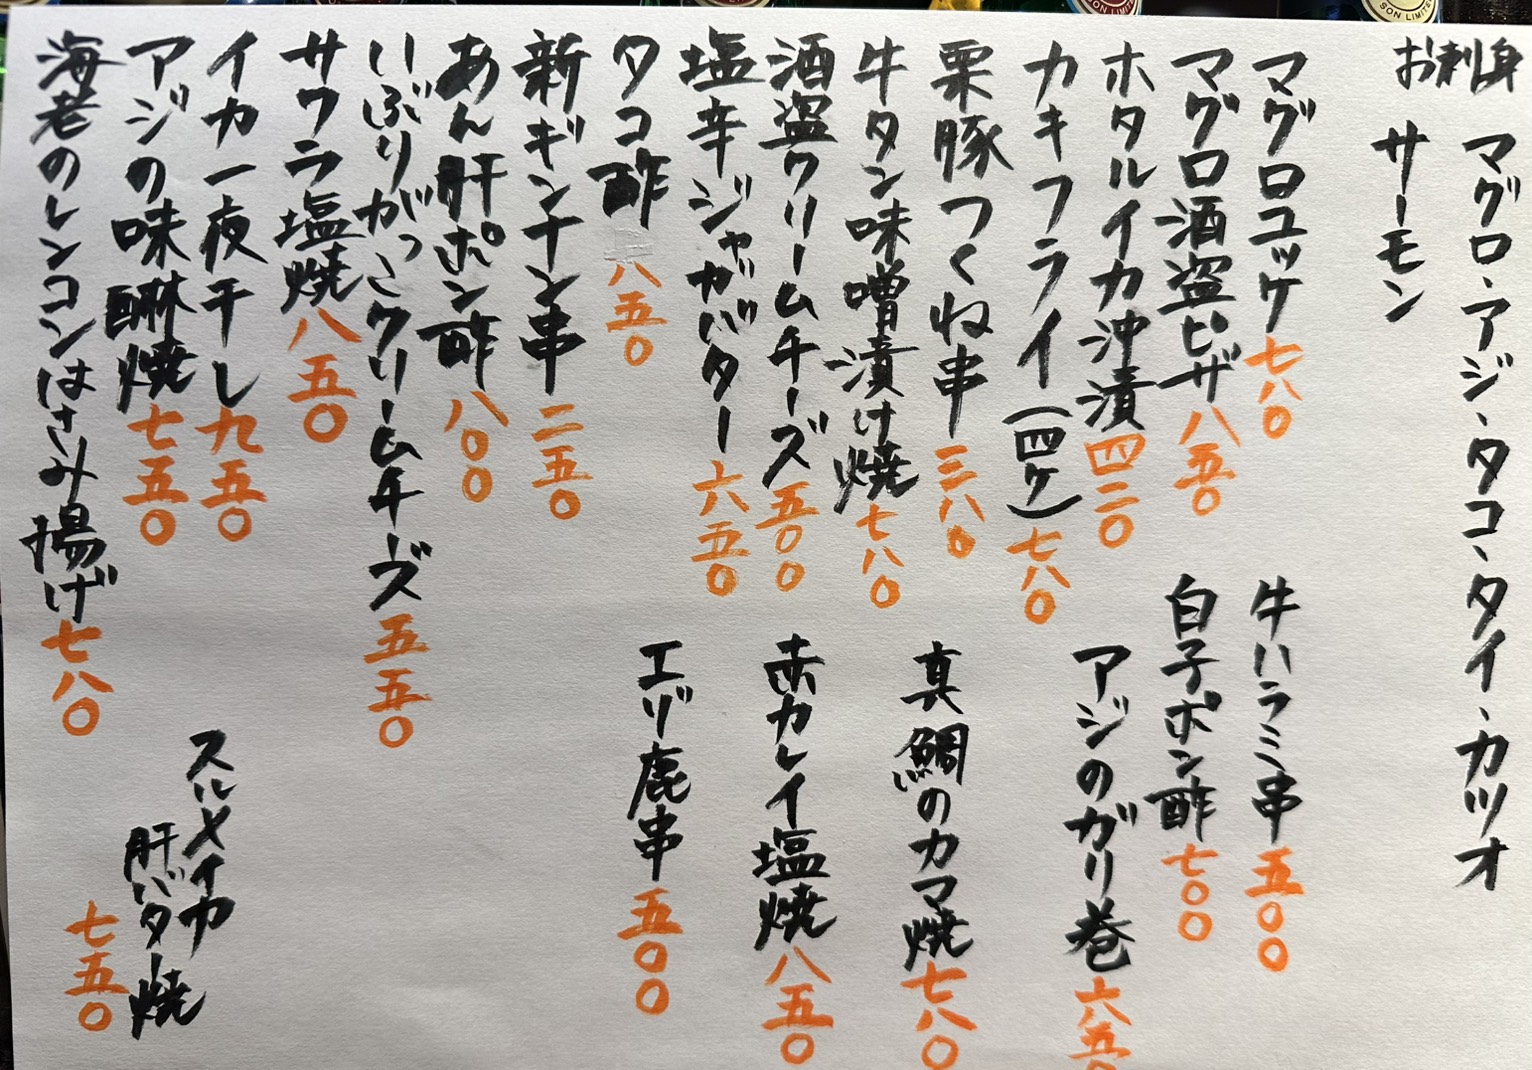 お刺身
マグロ、アジ、タコ、タイ、カツオ
サーモン
マグロユッケ 七八〇
牛ハラミ串 五〇〇
マグロ酒盗ピザ 八五〇
白子ポン酢 七〇〇
ホタルイカ沖漬 四二〇
アジのガリ巻 六五〇
カキフライ(四ケ) 七八〇
栗豚つくね串 三八〇
真鯛のカマ焼 七八〇
牛タン味噌漬け焼 七八〇
酒盗クリームチーズ 五〇〇
赤カレイ塩焼 八五〇
塩辛ジャガバター 六五〇
タコ酢 八五〇
エゾ鹿串 五〇〇
新ギンナン串 二五〇
あん肝ポン酢 八〇〇
いぶりがっこクリームチーズ 五五〇
サワラ塩焼 八五〇
イカ一夜干し 九五〇
アジの味醂焼 七五〇
スルメイカ
肝バター焼
七五〇
海老のレンコンはさみ揚げ 七八〇
SON LIMITE
SON LIMIT